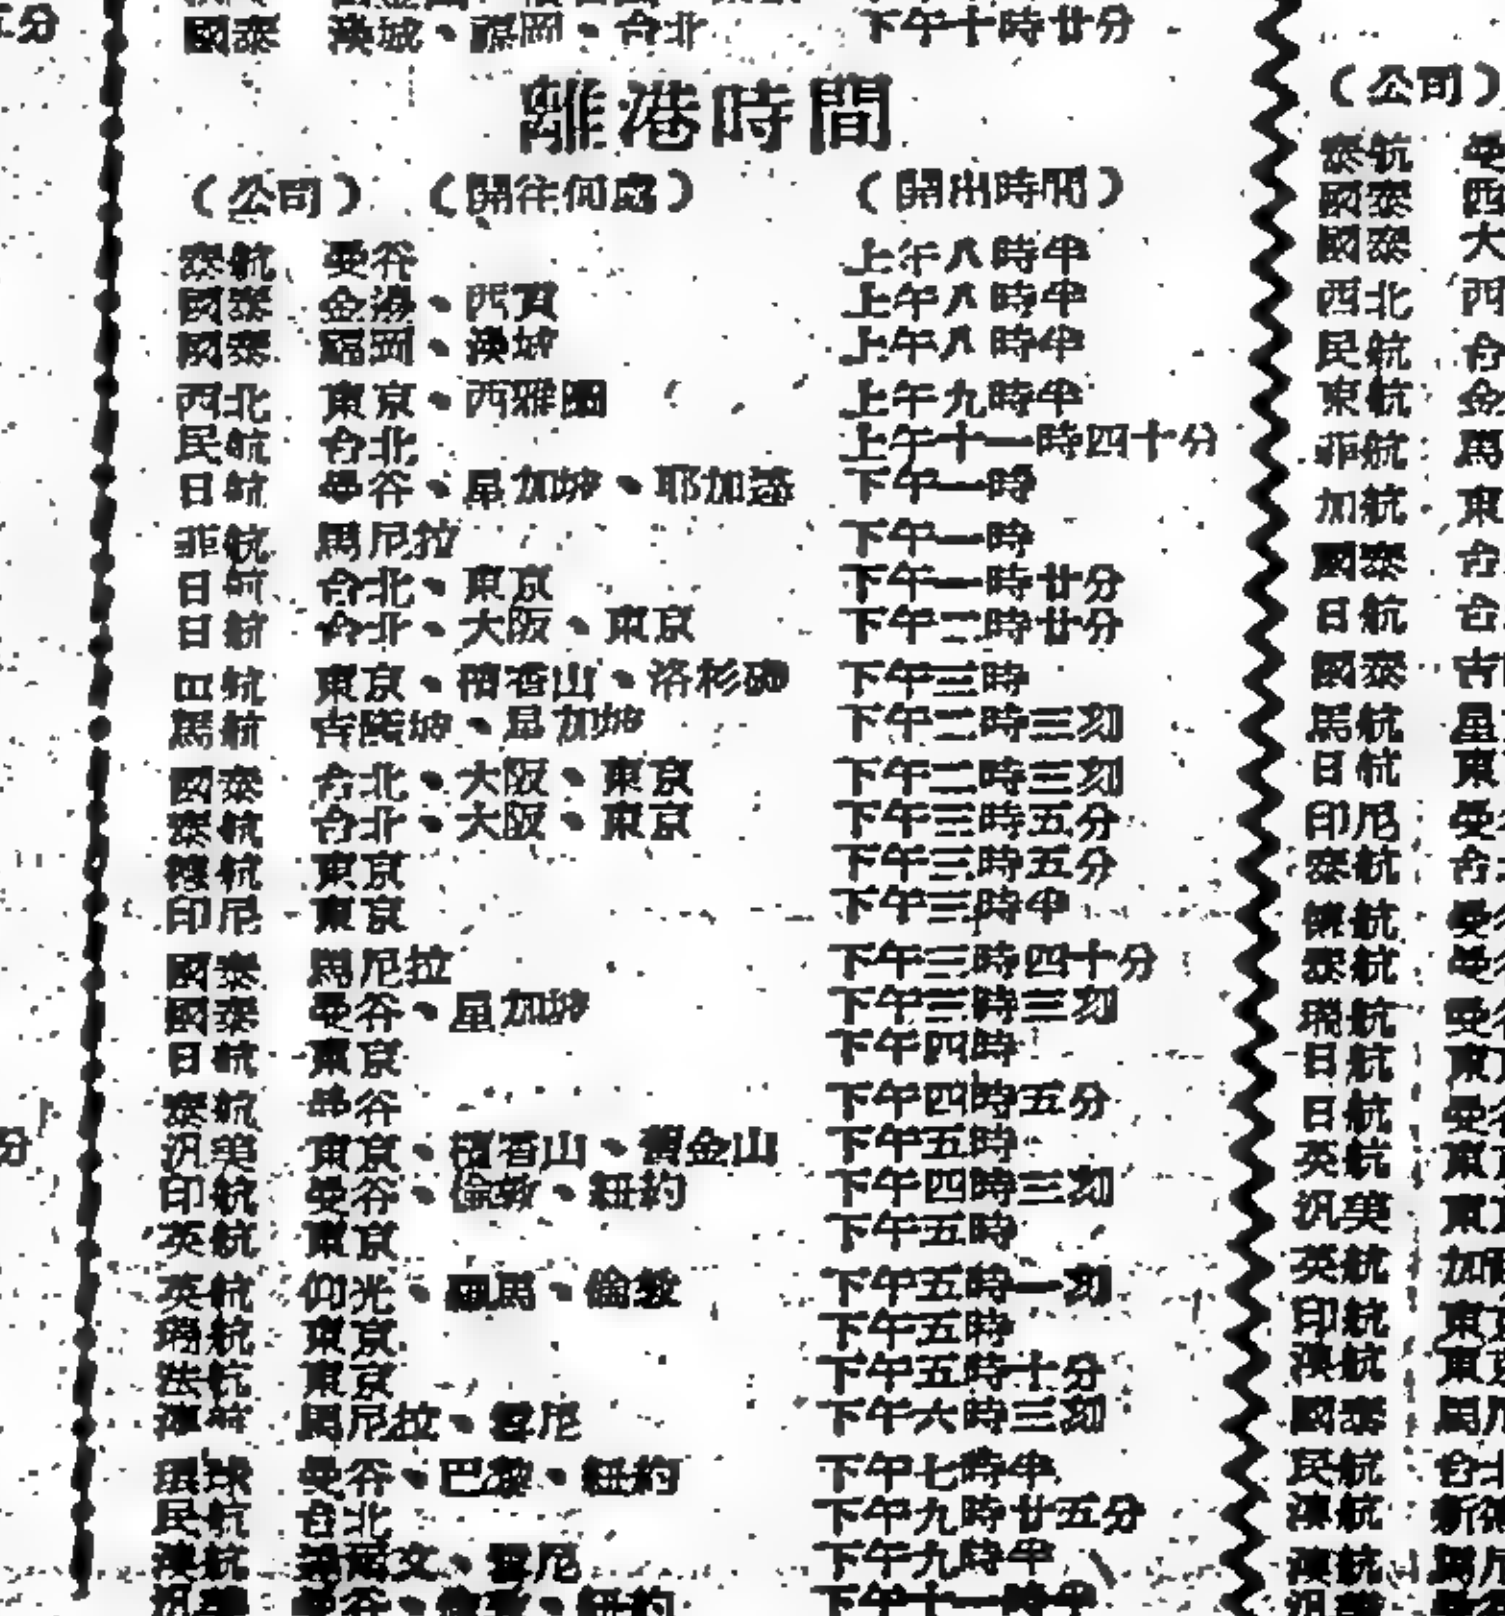 國泰 漢城、福岡、台北 下午十時廿分
離港時間
（公司） （開往何處） （開出時間）
泰航 曼谷 上午八時半
國泰 金邊、西貢 上午八時半
國泰 福岡、漢城 上午八時半
西北 東京、西雅圖 上午九時半
民航 台北 上午十一時四十分
日航 曼谷、星加坡、耶加達 下午一時
菲航 馬尼拉 下午一時
日航 台北、東京 下午一時廿分
日航 台北、大阪、東京 下午二時廿分
日航 東京、檀香山、洛杉磯 下午三時
馬航 吉隆坡、星加坡 下午二時三刻
國泰 台北、大阪、東京 下午二時三刻
泰航 台北、大阪、東京 下午三時五分
德航 東京 下午三時五分
印尼 東京 下午三時半
國泰 馬尼拉 下午三時四十分
國泰 曼谷、星加坡 下午三時三刻
日航 東京 下午四時
泰航 曼谷 下午四時五分
汎美 東京、檀香山、舊金山 下午五時
印航 曼谷、倫敦、紐約 下午四時三刻
英航 東京 下午五時
英航 仰光、羅馬、倫敦 下午五時一刻
瑞航 東京 下午五時
法航 東京 下午五時十分
澳航 馬尼拉、雪尼 下午六時三刻
環球 曼谷、巴黎、紐約 下午七時半
民航 台北 下午九時廿五分
澳航 文、雪尼 下午九時半
曼谷、紐約 下午十一時半
（公司）
泰航 曼
國泰 西
國泰 大
西北 西
民航 台
東航 金
菲航 馬
加航 東
國泰 台
日航 台
國泰 吉
馬航 星
日航 東
印尼 曼
泰航 台
德航 曼
泰航 曼
瑞航 曼
日航 東
日航 曼
英航 東
汎美 東
英航 加
印航 東
澳航 東
國泰 馬
民航 台北
澳航 新
澳航 馬